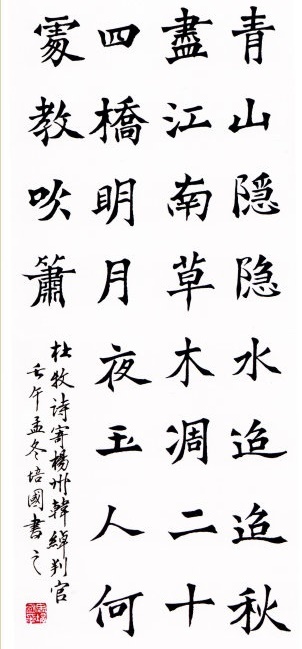 青山隱隐水迢迢秋
盡江南草木凋二十
四橋明月夜玉人何
處教吹簫
杜牧诗寄楊州韓綽判官
壬午孟冬培國書之